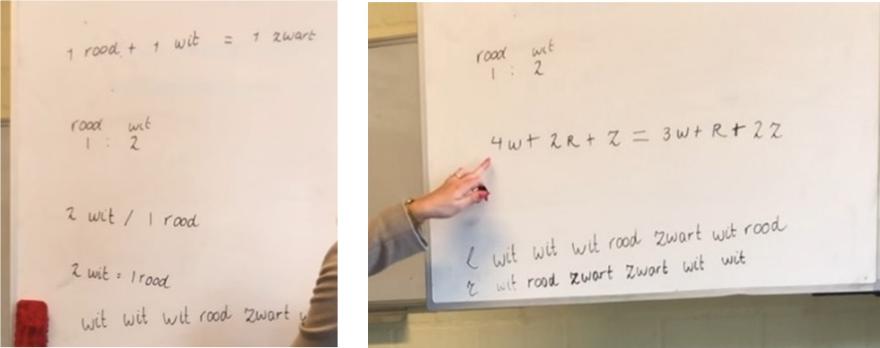 1 rood + 1 wit = 1 zwart
rood wit
1 : 2
2 wit / 1 rood
2 wit = 1 rood
wit wit wit rood zwart
rood wit
1 : 2
4W + 2R + Z = 3W + R + 2Z
wit wit wit rood zwart wit rood
wit rood zwart zwart wit wit